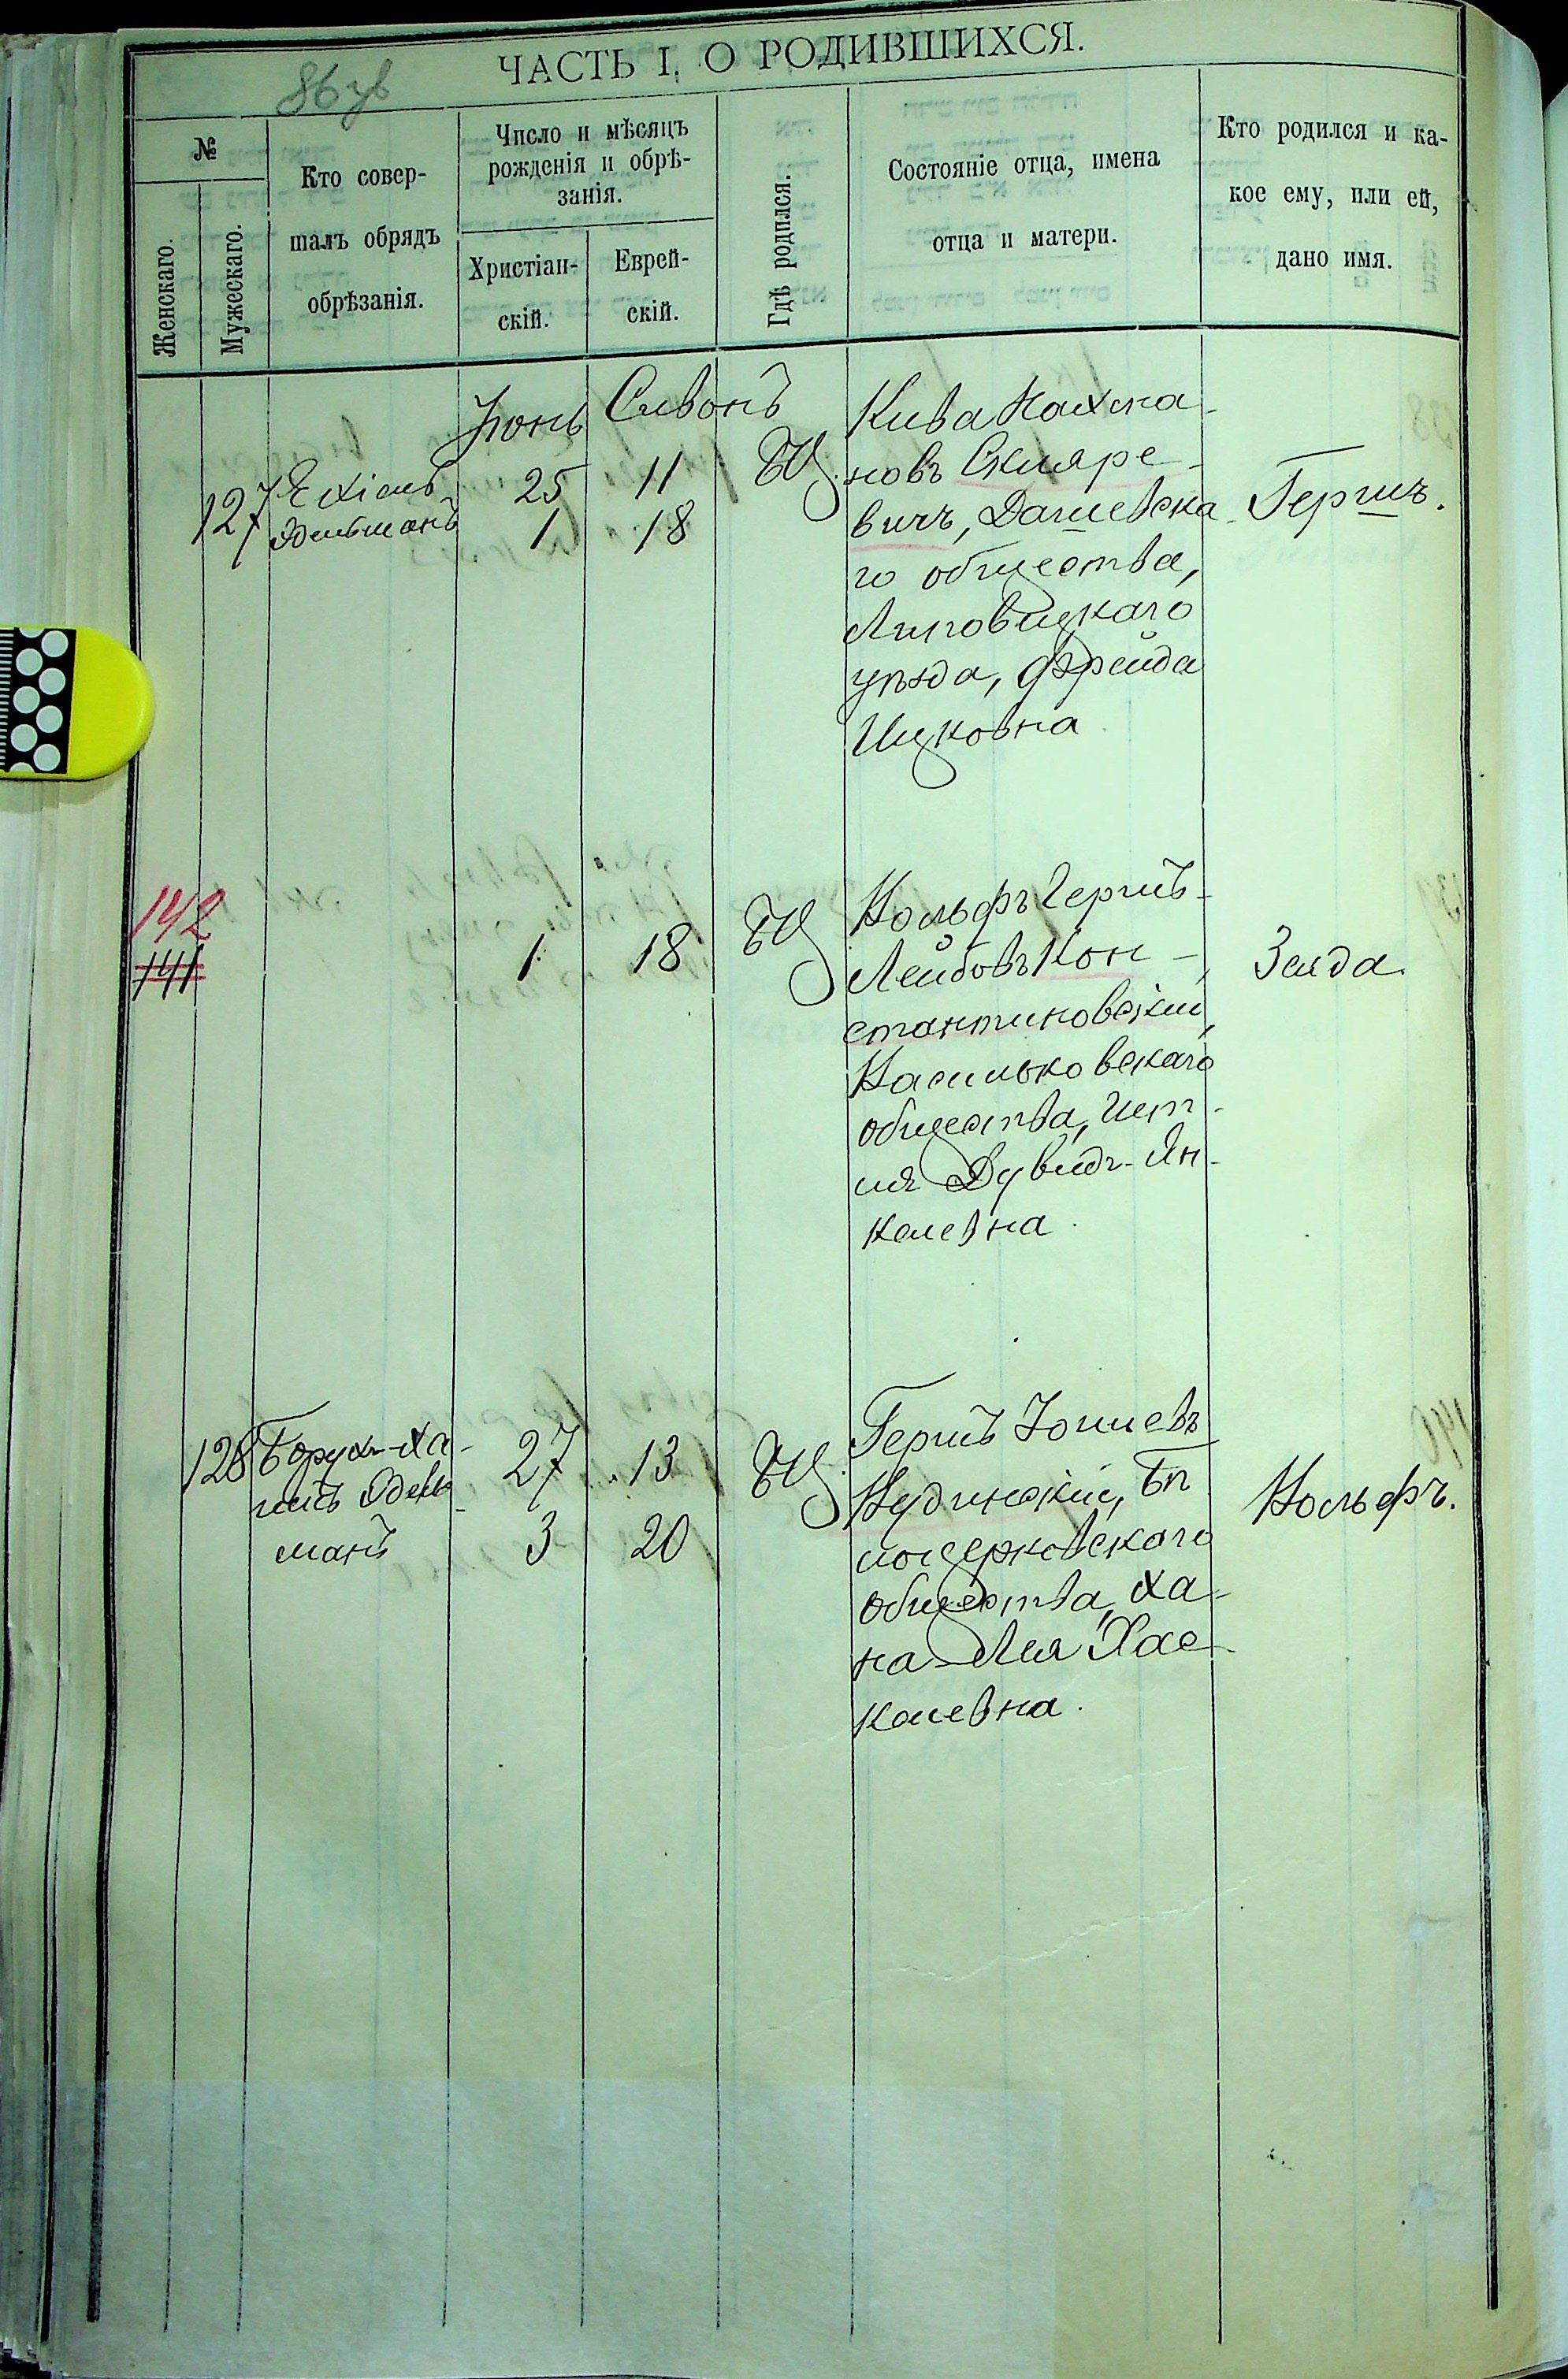 86 зв
ЧАСТЬ I. О РОДИВШИХСЯ.
№
Женскаго.
Мужескаго.
Кто совер-
шалъ обрядъ
обрѣзанія.
Число и мѣсяцъ
рожденія и обрѣ-
занія.
Христіан-
скій.
Еврей-
скій.
Гдѣ родился.
Состояніе отца, имена
отца и матери.
Кто родился и ка-
кое ему, или ей,
дано имя.
Іюнь Сивонъ
127
Ехіель
Эдельманъ
25 11
1 18
БЦ.
Кива Нахма-
новъ Скляре-
вичъ, Дашевска-
го общества,
Липовецкаго
уѣзда, Фрейда
Ицковна
Гершъ.
142
141
1 18
БЦ
Вольфъ Гершъ-
Лейбовъ Кон-
стантиновскій,
Васильковскаго
общества,
Дувидъ-Ян-
келевна.
Зелда.
128
Борухъ-Ха-
имъ Эдель-
манъ
27 13
3 20
БЦ.
Гершъ Іошиевъ
Нудинскій, Бѣ
лоцерковскаго
общества, Ха-
на-Лея Хас-
келевна.
Вольфъ.